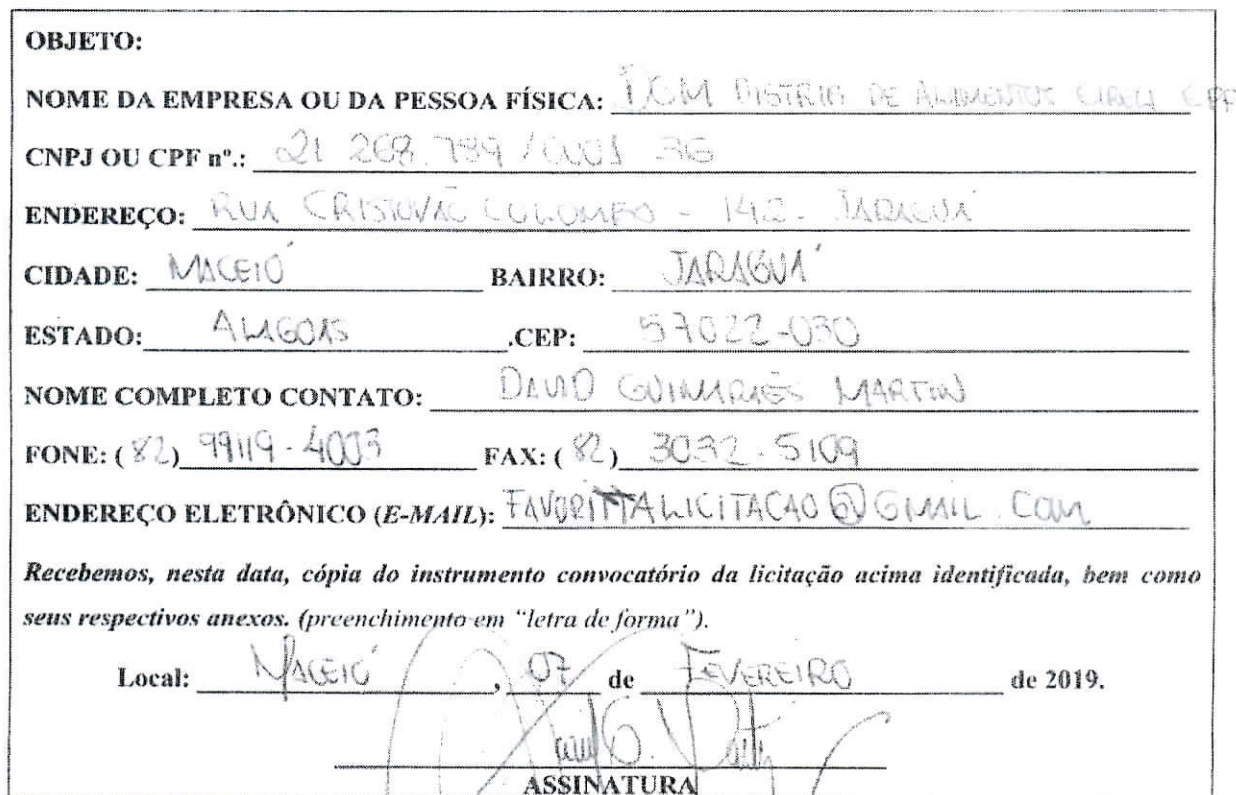 OBJETO:
NOME DA EMPRESA OU DA PESSOA FÍSICA: DISTRIB DE ALIMENTOS EIRELI EPP
CNPJ OU CPF nº.: 21 268.789 / 0001 36
ENDEREÇO: RUA CRISTOVÃO COLOMBO - 142 - JARAGUÁ
CIDADE: MACEIÓ BAIRRO: JARAGUÁ
ESTADO: ALAGOAS .CEP: 57022-030
NOME COMPLETO CONTATO: DAVID GUIMARÃES MARTIN
FONE: ( 82 ) 99119 - 4003 FAX: ( 82 ) 3032 - 5109
ENDEREÇO ELETRÔNICO (E-MAIL): FAVORITTALICITACAO@GMAIL.COM
Recebemos, nesta data, cópia do instrumento convocatório da licitação acima identificada, bem como
seus respectivos anexos. (preenchimento em "letra de forma").
Local: MACEIÓ, 07 de FEVEREIRO de 2019.
ASSINATURA